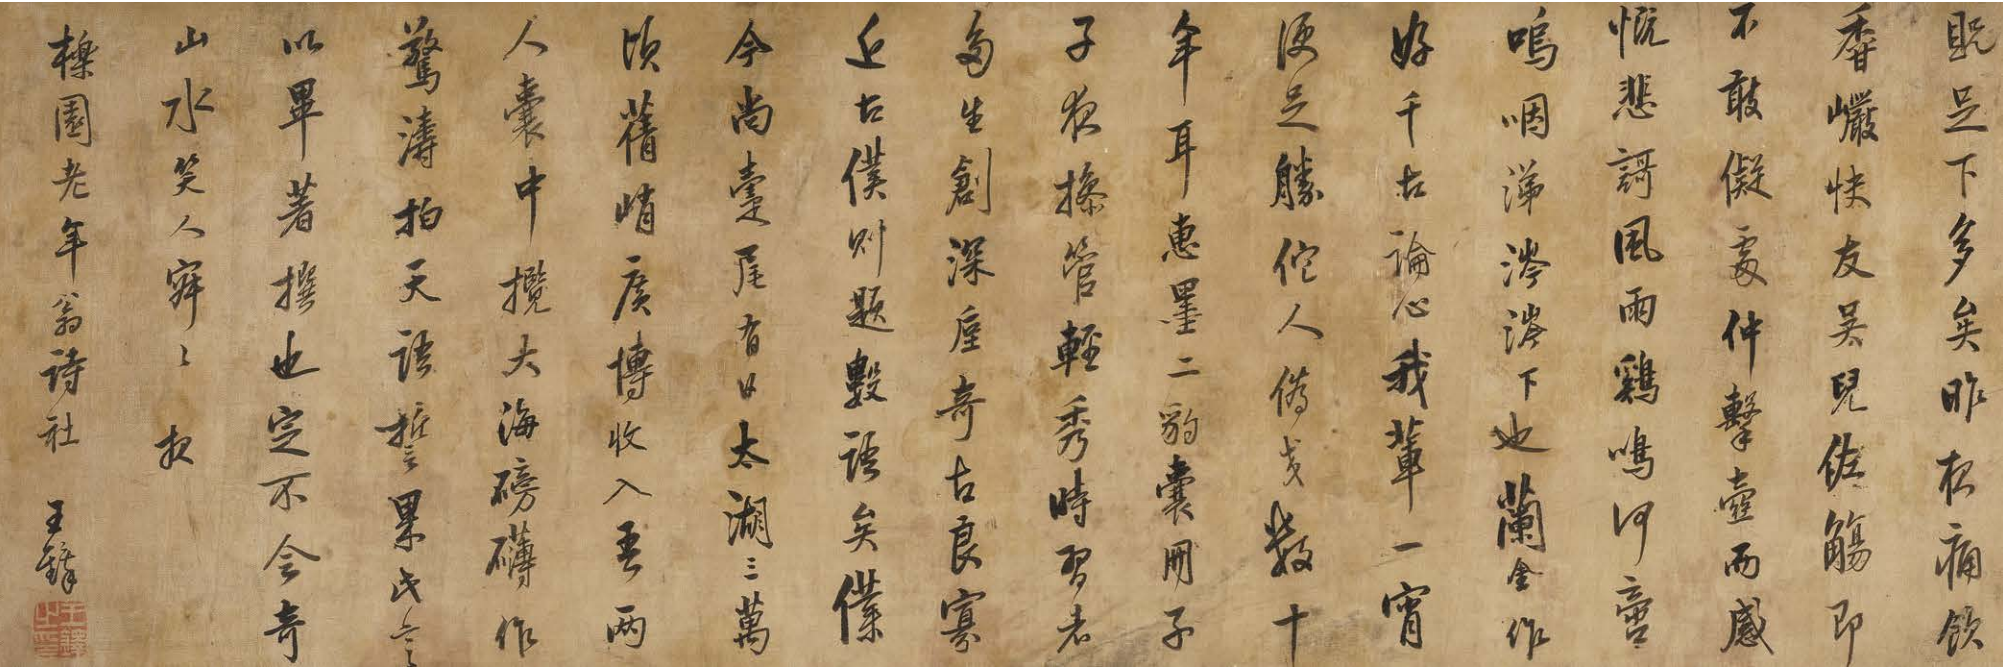 既足下多矣昨夜痛飲
香巖快友吳兒佐觴即
不敢儗處仲擊壺而感
慨悲謌風雨鷄鳴何啻
嗚咽涕涔涔下也蘭舍作
好千古論心我輩一宵
便足勝佗人偽交數十
年耳惠墨二豹囊用子
子夜搽管輕秀時習者
多生創深厓奇古良寡
近古僕則題數語矣僕
今尚臺尾有日太湖三萬
頃舊峭廣博收入吾兩
人囊中攬大海磅礴作
驚濤拍天語誓累氏言
以畢著撰也定不令奇
山水笑人寂々 叔
櫟園老年翁詩社 王鐸
王鐸之印